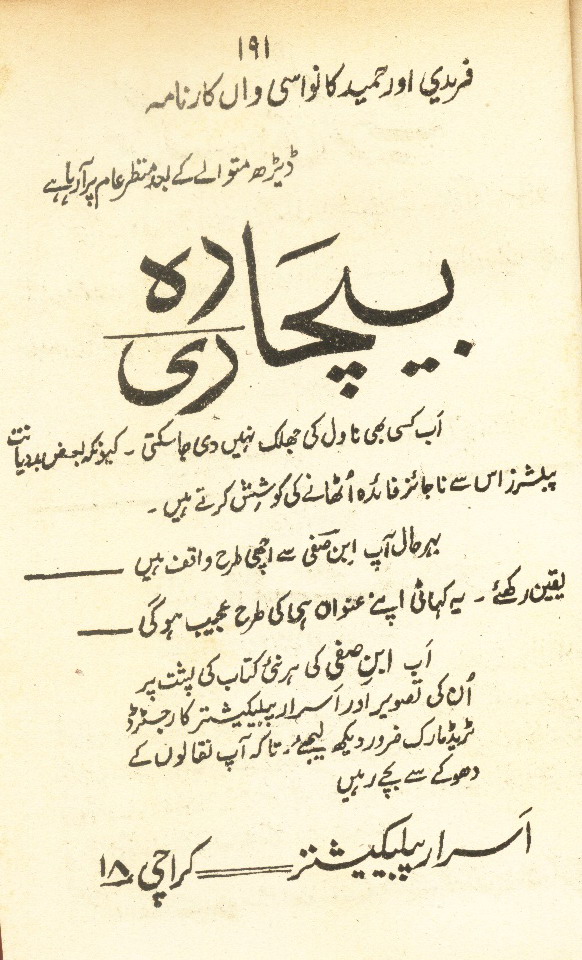 ۱۹۱
فریدی اور حمید کا نواسی واں کارنامہ
ڈیڑھ متوالے کے بعد منظر عام پر آ رہا ہے
بیچارہ
ری
اَب کسی بھی ناول کی جھلک نہیں دی جا سکتی ۔ کیونکہ بعض بددیانت
پبلشرز اس سے ناجائز فائدہ اُٹھانے کی کوشش کرتے ہیں ۔
بہرحال آپ ابنِ صفی سے اچھی طرح واقف ہیں ———
یقین رکھئے ۔ یہ کہانی اپنے عنوان ہی کی طرح عجیب ہوگی ——
آپ ابنِ صفی کی ہر نئی کتاب کی پشت پر
اُن کی تصویر اور اَسرار پبلیکیشنز کا رجسٹرڈ
ٹریڈ مارک ضرور دیکھ لیجئے ۔ تاکہ آپ نقالوں کے
دھوکے سے بچے رہیں
اَسرار پبلیکیشنز ══ کراچی ۱۸